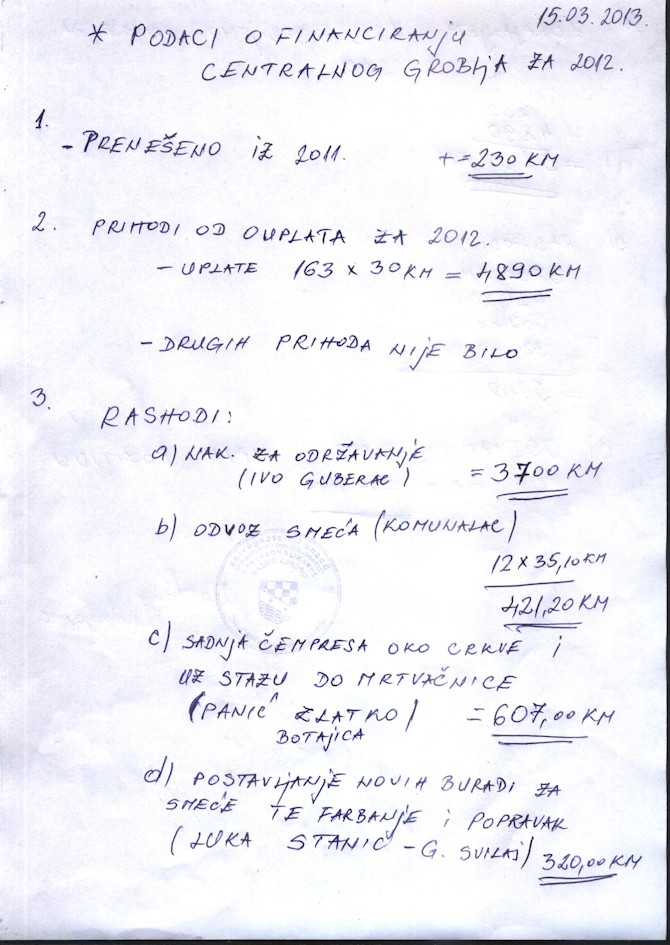 15.03.2013.
* PODACI O FINANCIRANJU
CENTRALNOG GROBLJA ZA 2012.
1.
- PRENEŠENO IZ 2011. += 230 KM
2. PRIHODI OD OUPLATA ZA 2012.
- UPLATE 163 x 30 KM = 4890 KM
- DRUGIH PRIHODA NIJE BILO
3.
RASHODI:
a) NAK. ZA ODRŽAVANJE
(IVO GUBERAC) = 3700 KM
b) ODVOZ SMEĆA (KOMUNALAC)
12 x 35,10 KM
421,20 KM
c) SADNJA ČEMPRESA OKO CRKVE I
UZ STAZU DO MRTVAČNICE
(PANIĆ ZLATKO) = 607,00 KM
BOTAJICA
d) POSTAVLJANJE NOVIH BURADI ZA
SMEĆE TE FARBANJE I POPRAVAK
(LUKA STANIĆ - G. SVILAJ) 320,00 KM